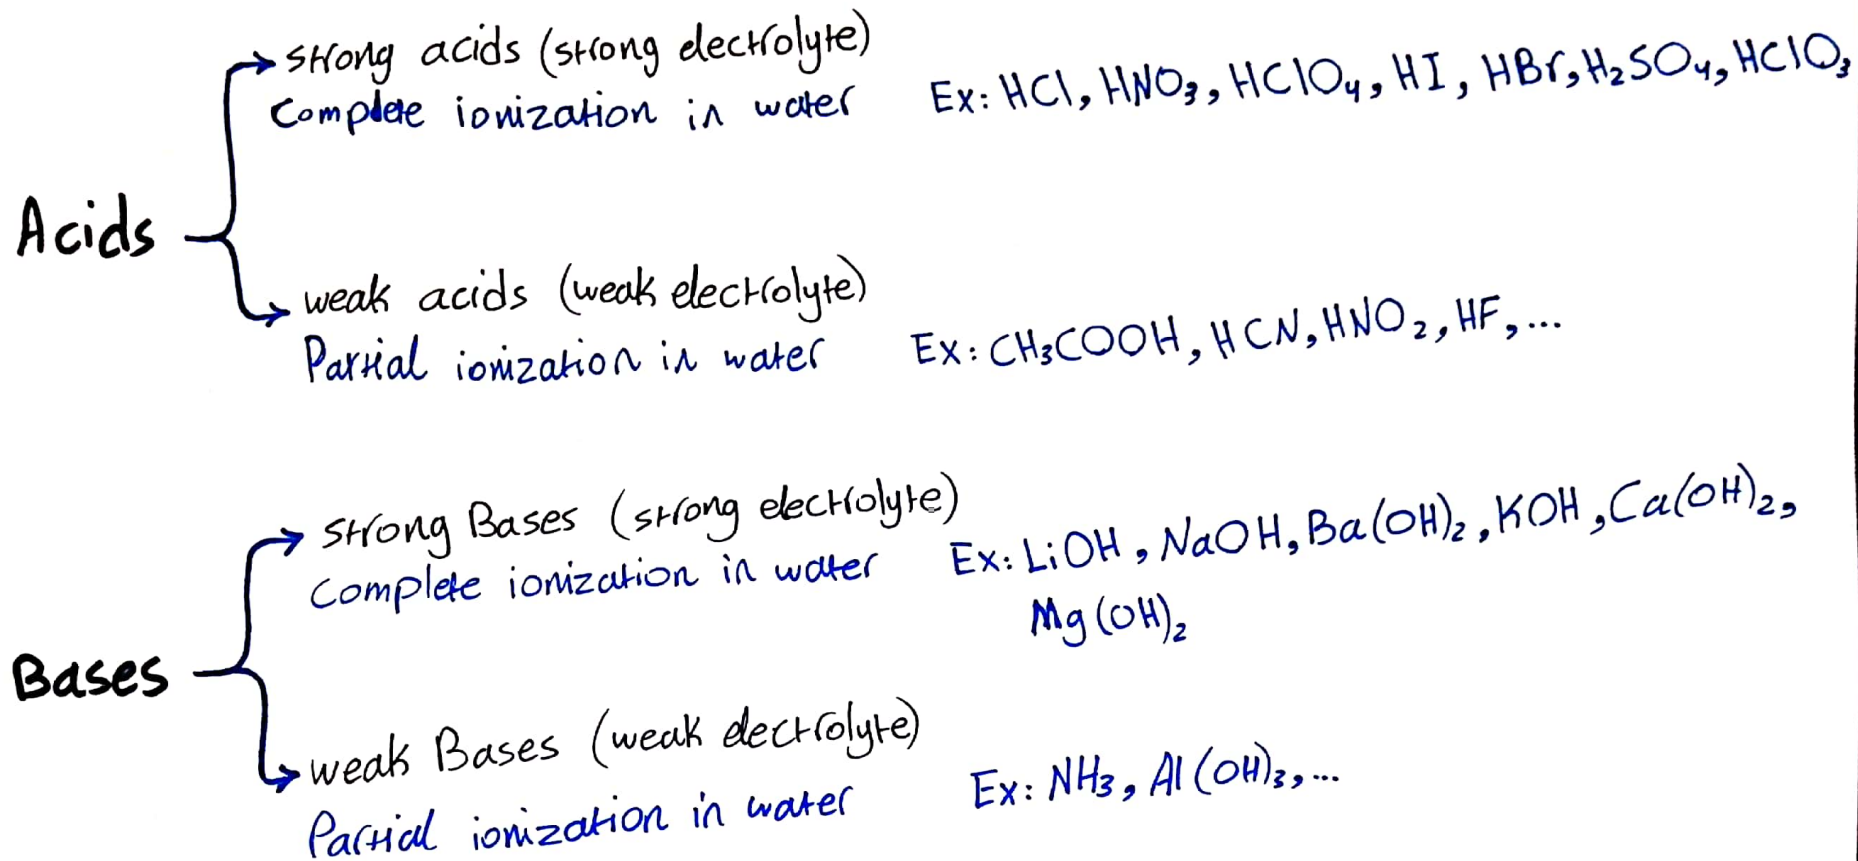 strong acids (strong electrolyte)
Complete ionization in water Ex: HCl, HNO₃, HClO₄, HI, HBr, H₂SO₄, HClO₃
Acids
weak acids (weak electrolyte)
Partial ionization in water Ex: CH₃COOH, HCN, HNO₂, HF, ...
strong Bases (strong electrolyte)
Complete ionization in water Ex: LiOH, NaOH, Ba(OH)₂, KOH, Ca(OH)₂,
Mg(OH)₂
Bases
weak Bases (weak electrolyte)
Partial ionization in water Ex: NH₃, Al(OH)₃, ...